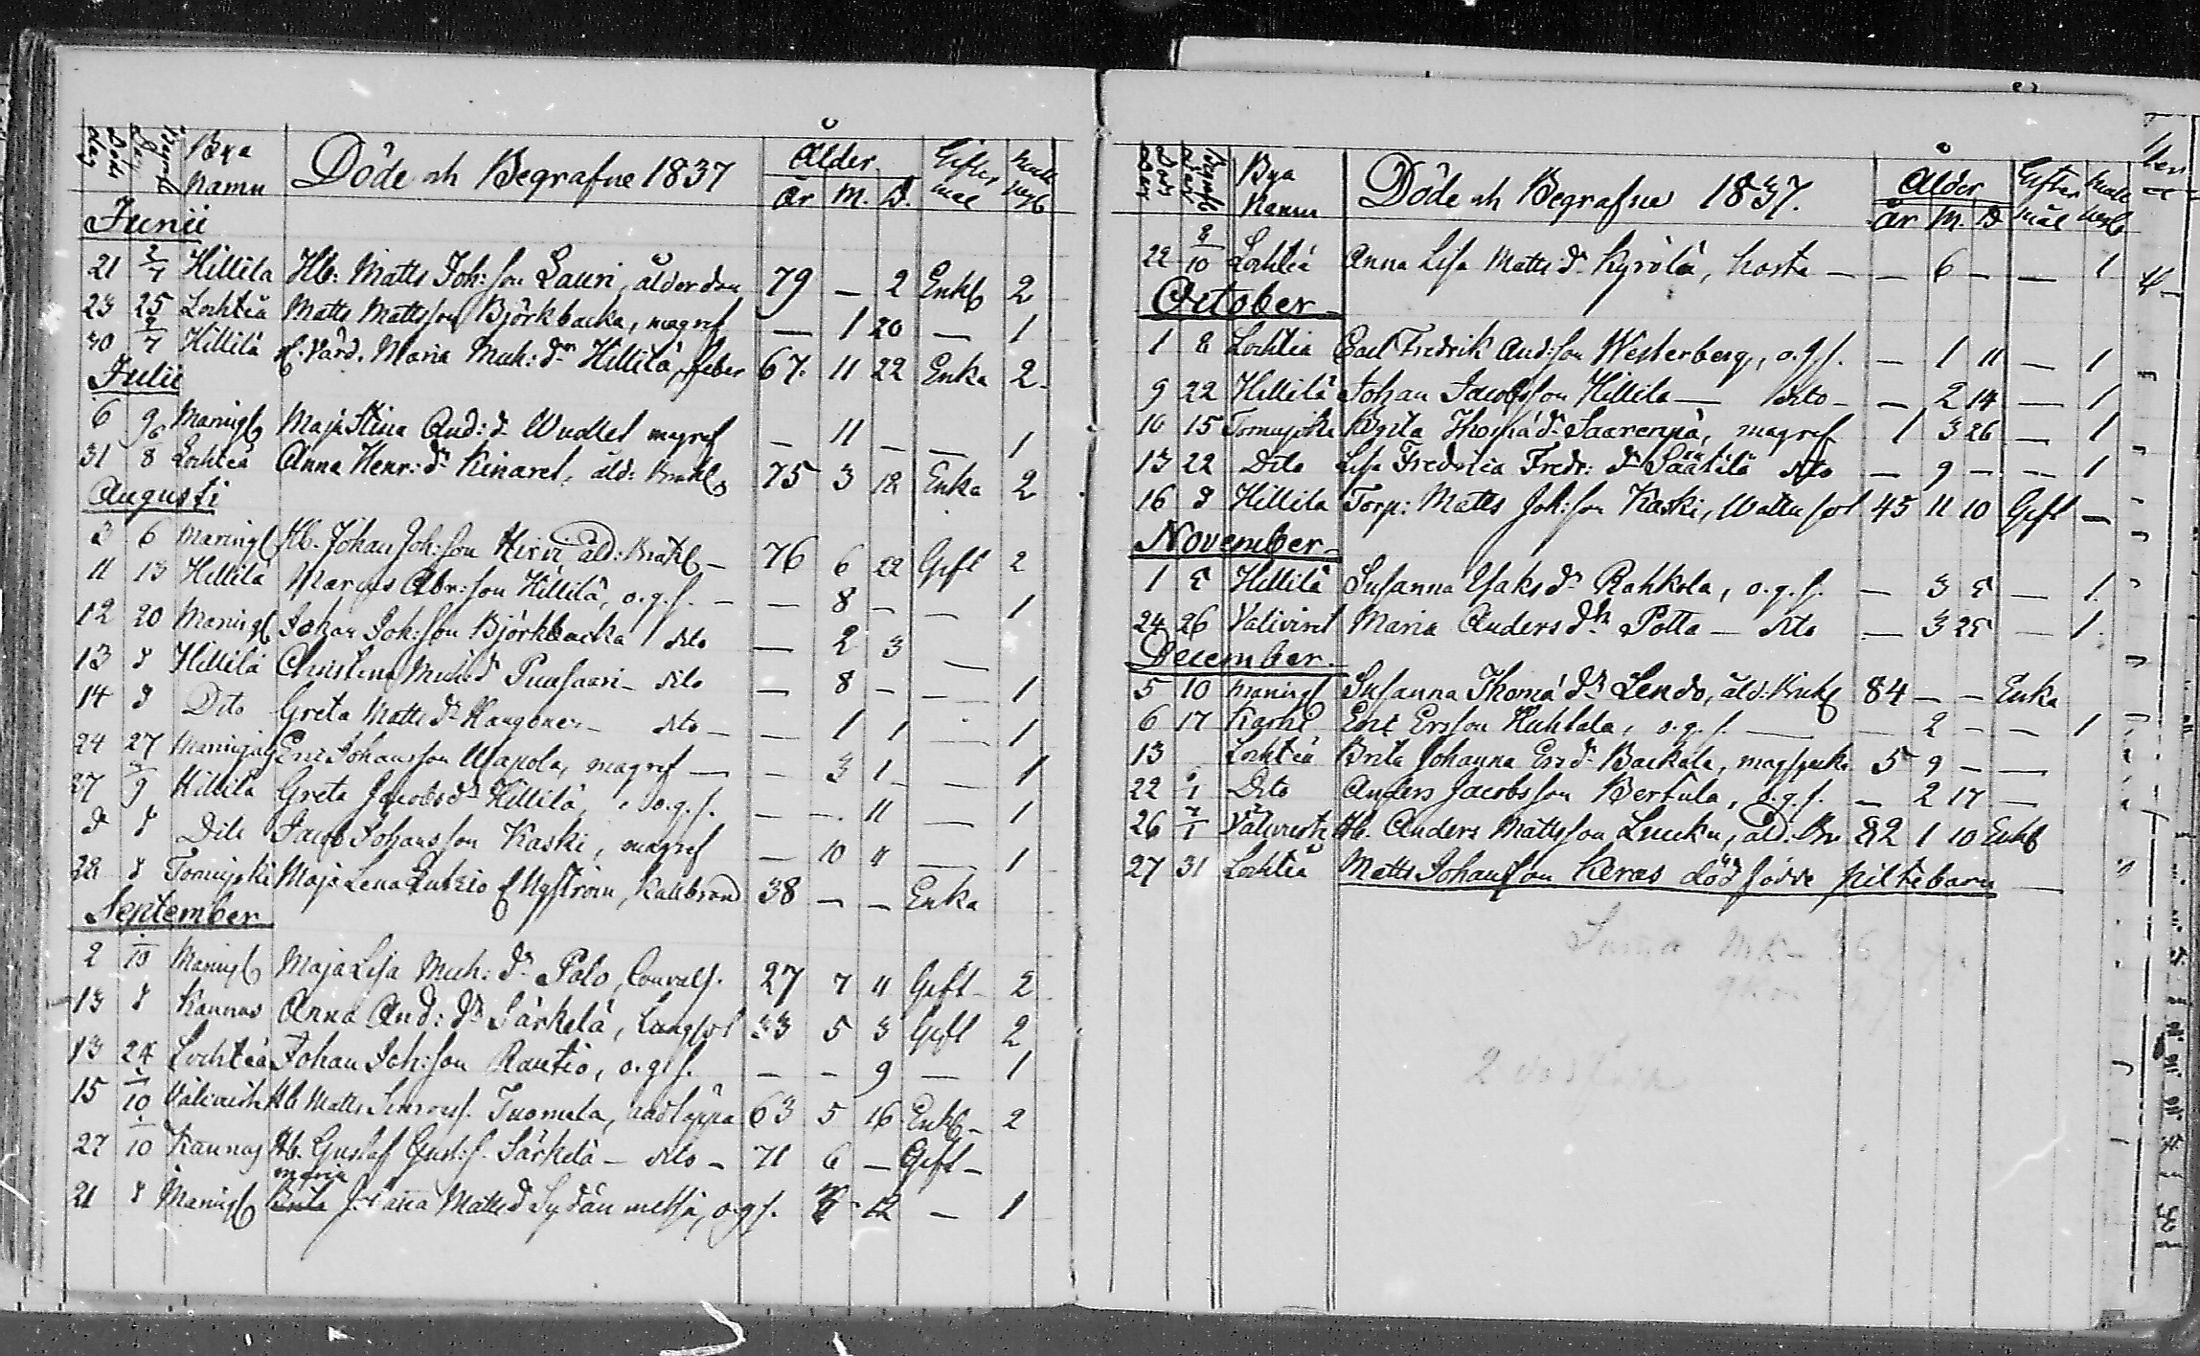 Döde och Begrafne 1837
Bya Namn Ålder år M. D. Giftermål
Junii
21 2/7 Hillilä Hb: Matts Joh:son Lauri, ålderdom 79 — 2 Enkl 2
23 25 Lochteå Matts Mattsson Björkbacka, magref — 1 20 — 1
30 2/7 Hillilä Maria Mich: dr Hillilä, feber 67. 11 22 Enka 2
Julii
6 9 Maningl Maja Stina And: dr magref — 11 — — 1
31 6/8 Lochteå Anna Henr: dr Kinaret, åld: Bräckl 75 3 18 Enka 2
Augusti
3 6 Maningl Hb. Johan Joh:son Hirvi åld: Bräckl — 76 6 22 Gift 2
11 13 Hillilä Marcus Abr:son Hillilä, o.g.s. — — 8 — — 1
12 20 Maningl Johan Joh:son Björkbacka dito — 2 3 —
13 d Hillilä Christina Mich d — dito — 8 — — 1
14 d Dito Greta Matts dr — dito — — 1 1 — 1
24 27 Eric Johansson magref — — 3 1 — 1
27 3/9 Hillilä Greta Jacobs dr Hillilä, o.g.s. — — 11 — 1
d d Dito Jacob Johansson Kaski, magref — 10 11 — 1
28 d Maja Lena Kallbrand 38 — — Enka
September
2 10 Maningl Maja Lisa Mich: dr Polo, Convuls. 27 7 11 Gift — 2
13 d Kannus Anna And: dr Särkelä, Lungsot 33 5 3 Gift 2
13 24 Lochteå Johan Joh:son Rautio, o.g.s. — — 9 — 1
15 1/10 Hb Matts Tuomela, 63 5 16 Enkl — 2
27 1/10 Kannus Hb. Gustaf Gust:s. Särkelä — dito — 71 6 — Gift —
Maria
21 d Maningl Johanna Matts d Sydänmetsä, o.g.s. 12 — 1
Bya Namn Döde och Begrafne 1837. Ålder år M. D Giftermål
22 8/10 Lochteå Anna Lisa Matts dr Kyrölä, hosta — — 6 — — 1
October
1 8 Lochteå Carl Fredrik And:son Westerberg, o.g.s. — 1 11 — 1
9 22 Hillilä Johan Jacobsson Hillilä — dito — — 2 14 — 1
10 15 Brita Thomä dr Saarenpä, magref 1 3 26 — 1
13 22 Dito Lisa Fredrica Fredr: dr Säätilä dito — 9 — — 1
16 d Hillilä Torp: Matts Joh:son Kaski, Wattusot 45 11 10 Gift —
November
1 5 Hillilä Susanna Isaks dr Rahkola, o.g.s. — 3 5 — 1
24 26 Maria Anders dr Potta — dito — 3 25 — 1
December
5 10 Maningl Susanna Thomä dr Lendo, åld: Bräckl 84 — — Enka
6 17 Eric Ersson Huhtala, o.g.s. — — 2 — — 1
13 Lochteå Brita Johanna Ers dr Backala, 5 9 — —
22 1/1 Dito Anders Jacobsson Bertula, o.g.s. — 2 17 —
26 Hb. Anders Mattsson Luckn, åld. Br 82 1 10 Enkl
27 31 Lochteå Matts Johansson Keräs dödfödde piltebarn —
Suma Mk — 36